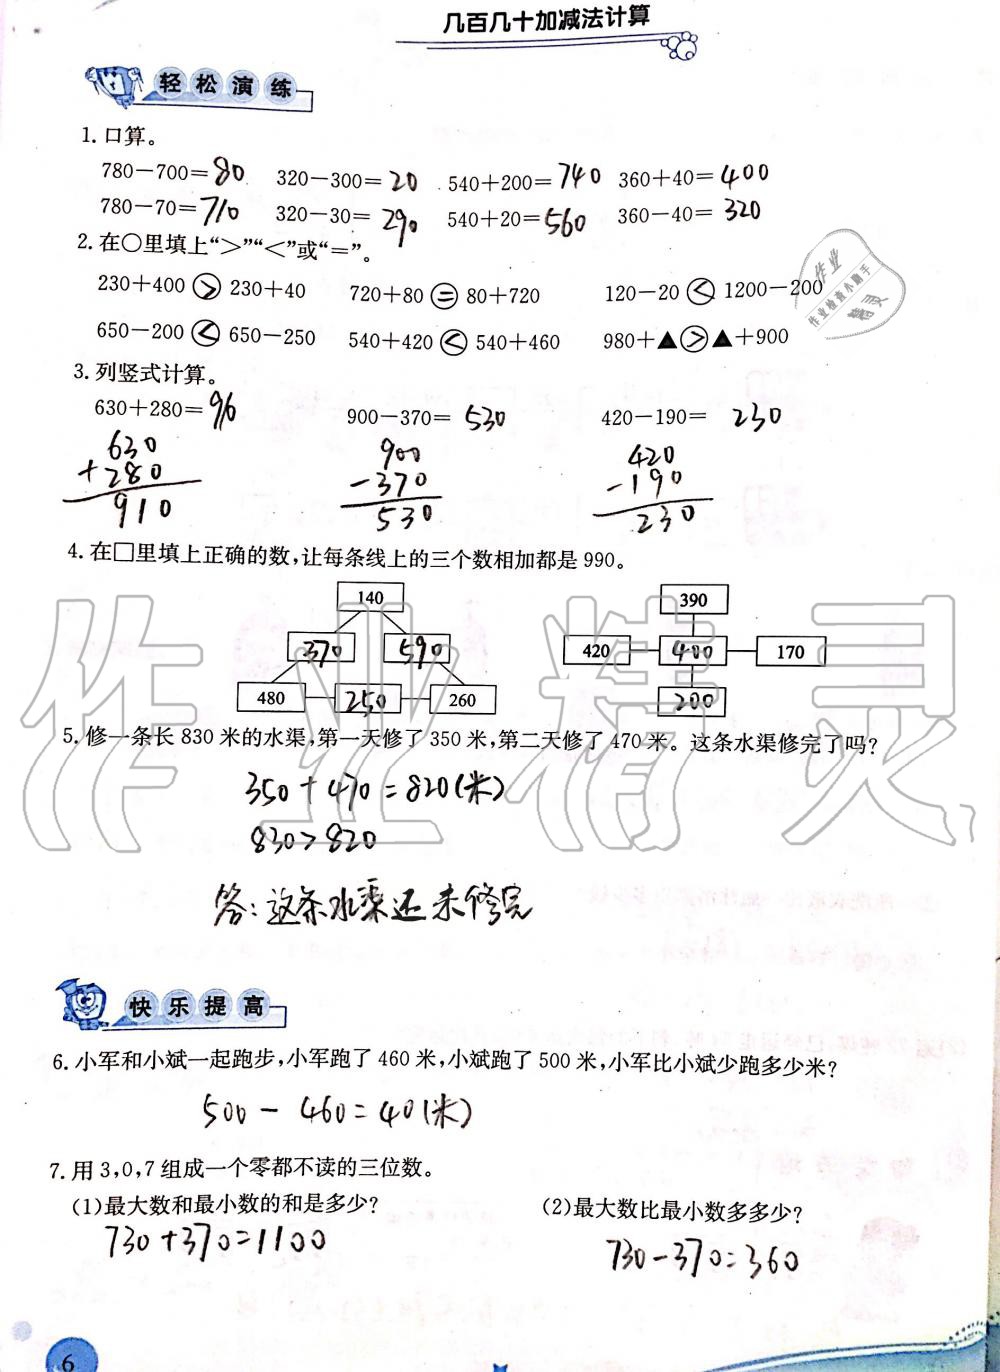 几百几十加减法计算
轻松演练
1. 口算。
780－700＝80 320－300＝20 540＋200＝740 360＋40＝400
780－70＝710 320－30＝290 540＋20＝560 360－40＝320
2. 在○里填上“＞”“＜”或“＝”。
230＋400 ＞ 230＋40 720＋80 ＝ 80＋720 120－20 ＜ 1200－200
650－200 ＜ 650－250 540＋420 ＜ 540＋460 980＋▲ ＞ ▲＋900
作业
作业检查小助手
精灵
3. 列竖式计算。
630＋280＝96 900－370＝530 420－190＝230
630 900 420
＋280 －370 －190
910 530 230
4. 在□里填上正确的数，让每条线上的三个数相加都是 990。
140 390
370 590 420 400 170
480 250 260 200
作业精灵
5. 修一条长 830 米的水渠，第一天修了 350 米，第二天修了 470 米。这条水渠修完了吗？
350＋470＝820(米)
830＞820
答：这条水渠还未修完
快乐提高
6. 小军和小斌一起跑步，小军跑了 460 米，小斌跑了 500 米，小军比小斌少跑多少米？
500－460＝40(米)
7. 用 3,0,7 组成一个零都不读的三位数。
(1)最大数和最小数的和是多少？ (2)最大数比最小数多多少？
730＋370＝1100 730－370＝360
6